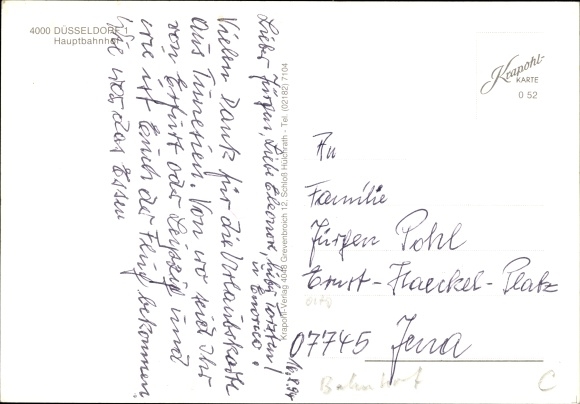 4000 DÜSSELDORF 1
Hauptbahnhof
Lieber Jürgen, Liebe Eleonore, Lieber Torsten!
u. Enorico!
Vielen Dank für die Urlaubskarte
aus Tunesien. Von wo seid Ihr
von Erfurt oder Leipzig und
wie ist Euch der Flug bekommen.
Wie war das Essen
16.8.94
Krapohl-Verlag 4048 Grevenbroich 12, Schloß Hülchrath - Tel. (02182) 7104
Krapohl-
KARTE
0 52
An
Familie
Jürgen Pohl
Ernst-Haeckel-Platz
07745 Jena
Bahnhof
C